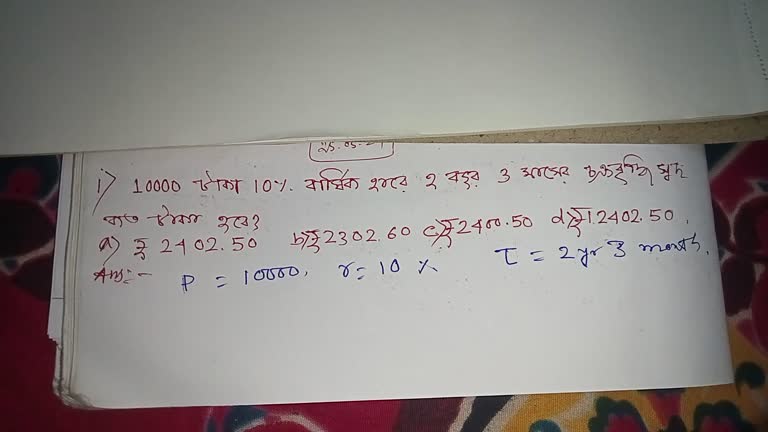 25.05.21
i) 10000 টাকা 10%. বার্ষিক হারে 2 বছর 3 মাসের চক্রবৃদ্ধি সুদ
কত টাকা হবে?
a) ₹ 2402.50 b) ₹ 2302.60 c) ₹ 2400.50 d) ₹ 12402.50.
Ans:- P = 10000, r = 10 % T = 2 yr 3 month.